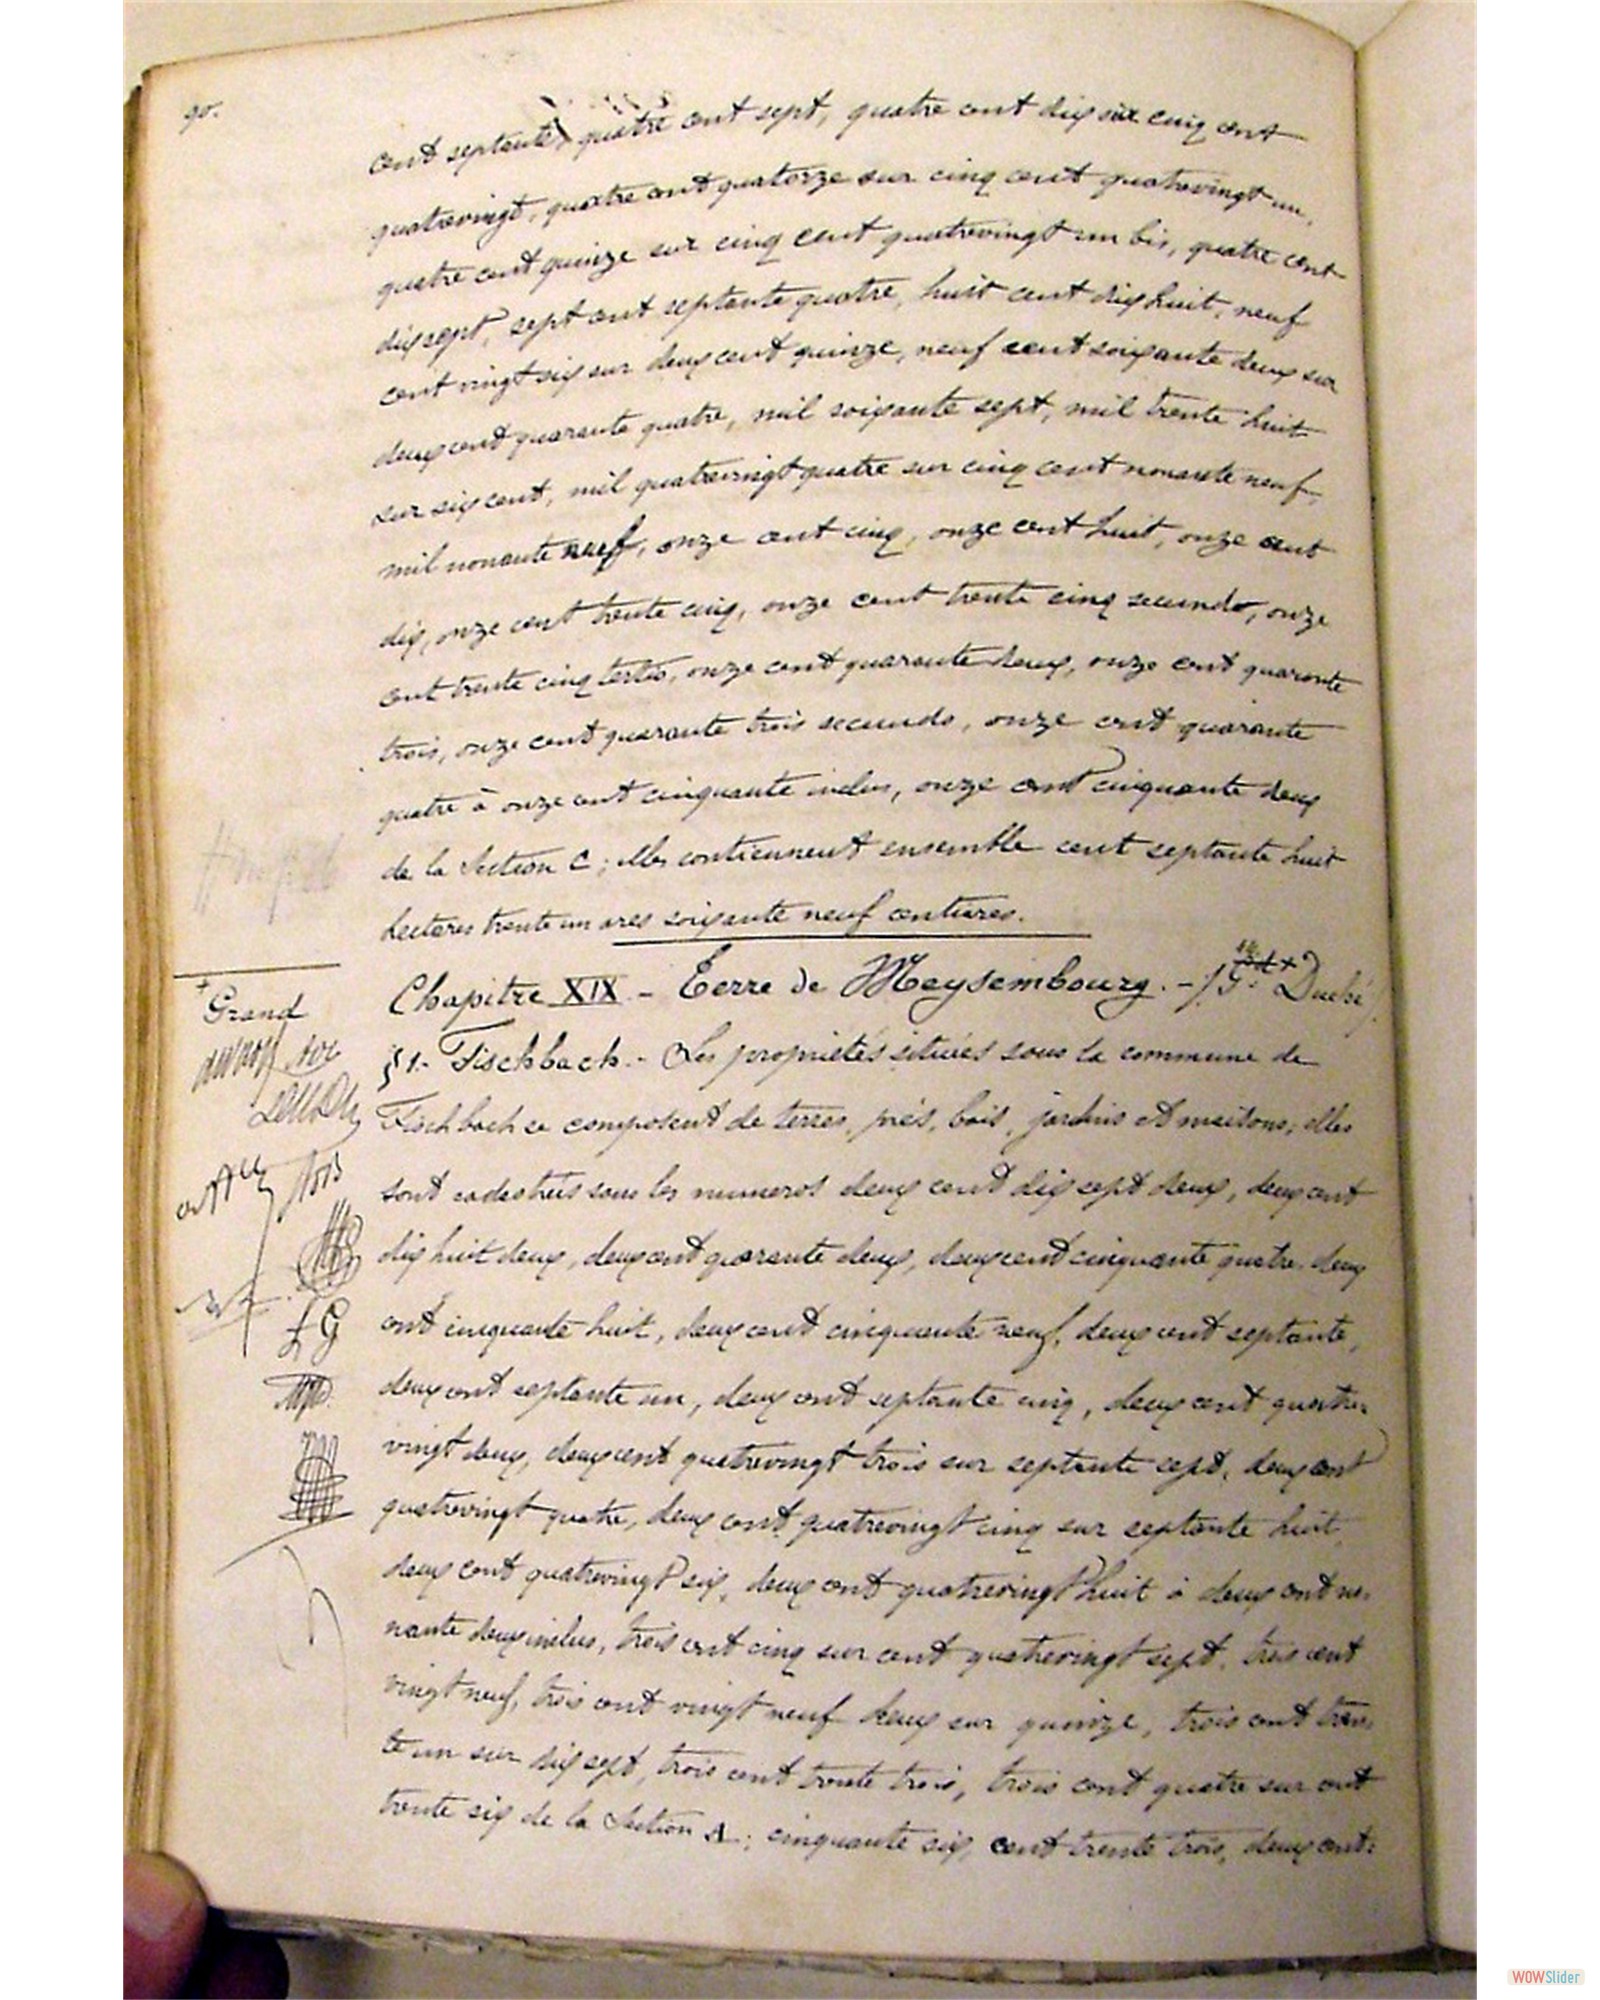 90.
cent septante, quatre cent sept, quatre cent dix sur cinq cent
quatrevingt, quatre cent quatorze sur cinq cent quatrevingt un,
quatre cent quinze sur cinq cent quatrevingt un bis, quatre cent
dix sept, sept cent septante quatre, huit cent dix huit, neuf
cent vingt six sur deux cent quinze, neuf cent soixante deux sur
deux cent quarante quatre, mil soixante sept, mil trente huit
sur six cent, mil quatrevingt quatre sur cinq cent nonante neuf,
mil nonante neuf, onze cent cinq, onze cent huit, onze cent
dix, onze cent trente cinq, onze cent trente cinq secundo, onze
cent trente cinq tertio, onze cent quarante deux, onze cent quarante
trois, onze cent quarante trois secundo, onze cent quarante
quatre à onze cent cinquante inclus, onze cent cinquante deux
de la Section C; elles contiennent ensemble cent septante huit
hectares trente un ares soixante neuf centiares.
Chapitre XIX - Terre de Meysembourg. - /G. Duché/
+ Grand
§ 1. - Fischbach. - Les propriétés situées sous la commune de
Fischbach se composent de terres, prés, bois, jardins et maisons; elles
sont cadastrées sous les numeros deux cent dix sept deux, deux cent
dix huit deux, deux cent quarante deux, deux cent cinquante quatre, deux
cent cinquante huit, deux cent cinquante neuf, deux cent septante,
deux cent septante un, deux cent septante cinq, deux cent quatre
vingt deux, deux cent quatrevingt trois sur septante sept, deux cent
quatrevingt quatre, deux cent quatrevingt cinq sur septante huit,
deux cent quatrevingt six, deux cent quatrevingt huit à deux cent no-
nante deux inclus, trois cent cinq sur cent quatrevingt sept, trois cent
vingt neuf, trois cent vingt neuf deux sur quinze, trois cent tren-
te un sur dix sept, trois cent trente trois, trois cent quatre sur cent
trente six de la Section A; cinquante six, cent trente trois, deux cent
WOWSlider